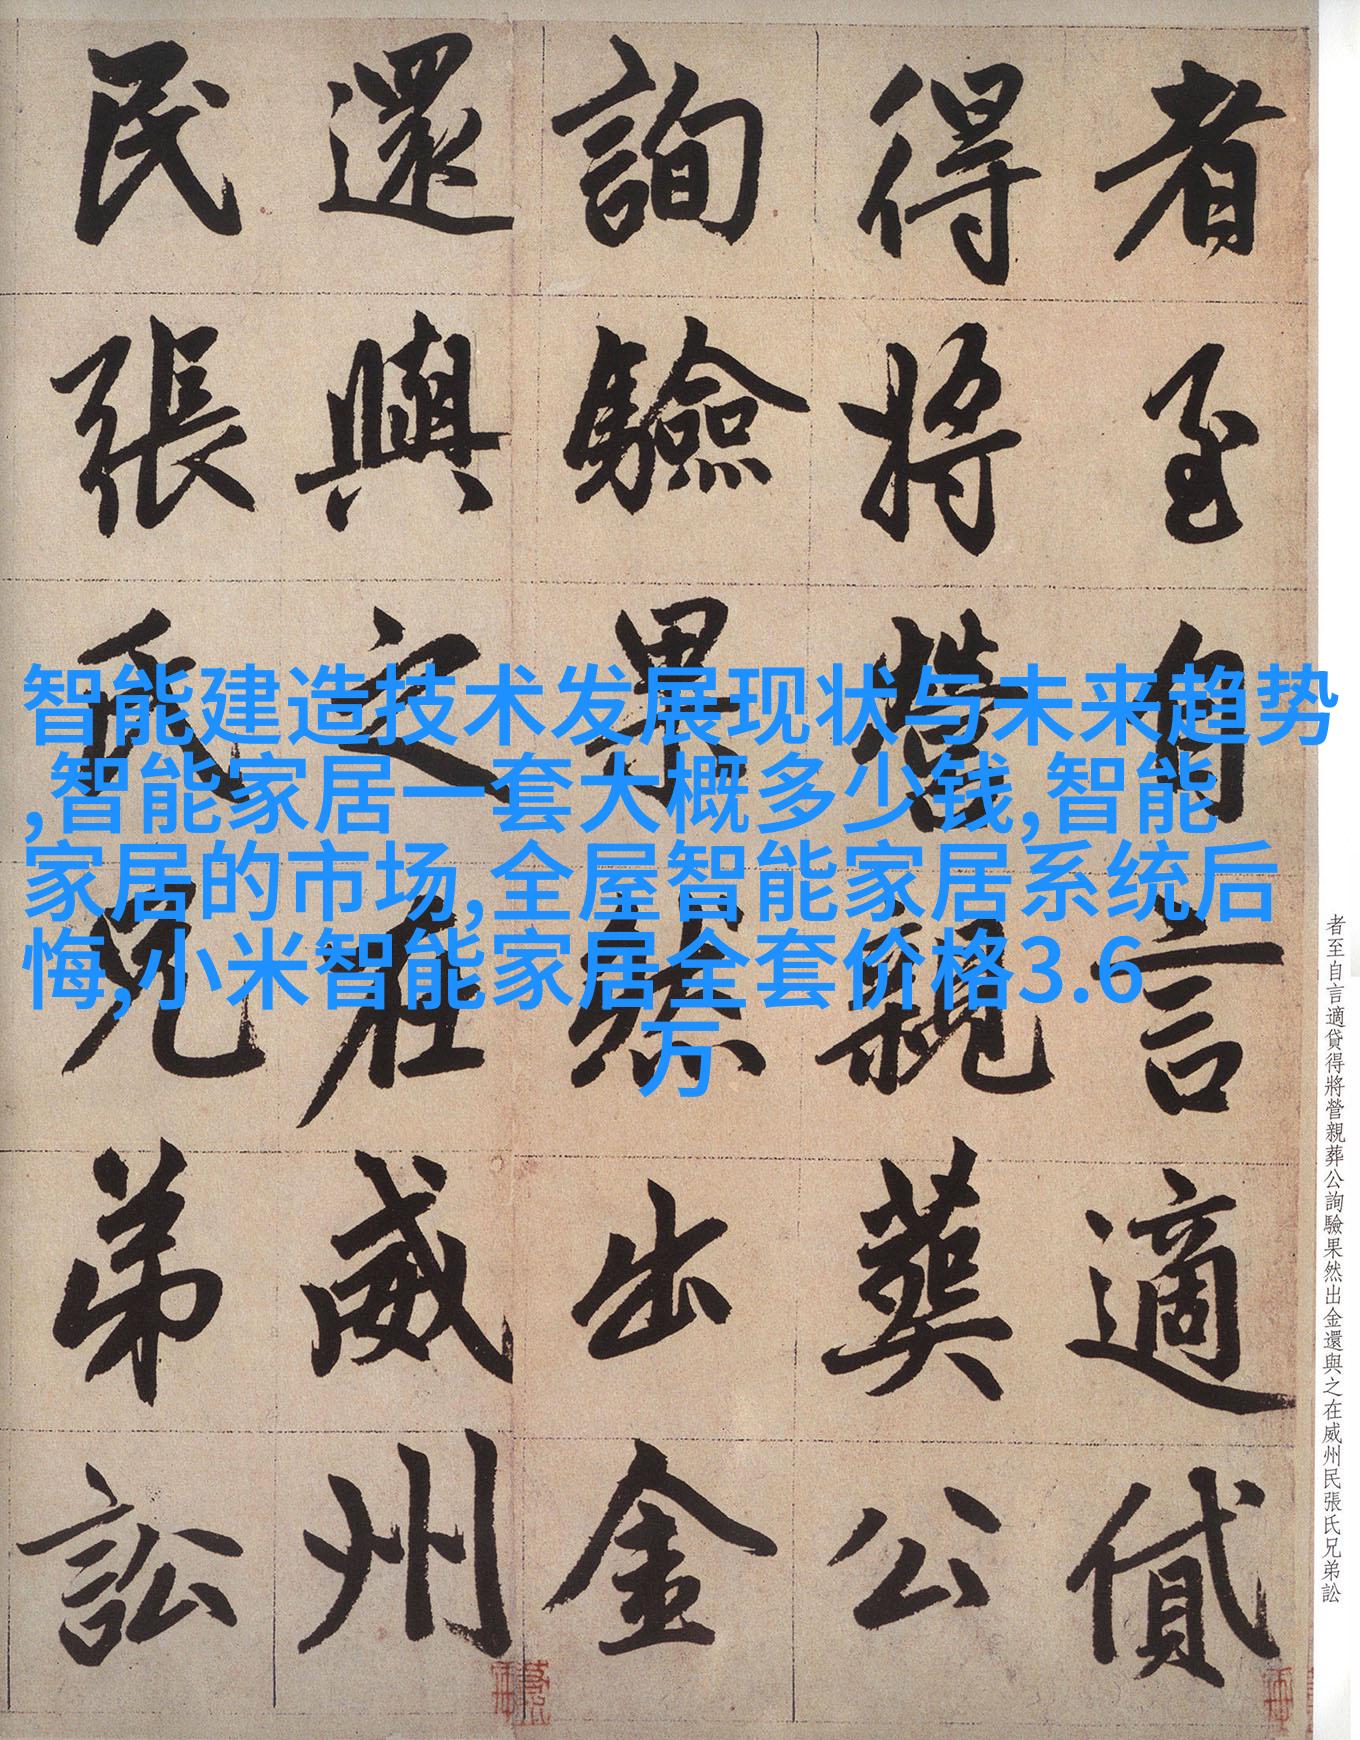 者至自言適貸
得將營親葬公
詢驗果然出金
還與之在威州
民張氏兄弟訟
智能建造技术发展现状与未来趋势
,智能家居一套大概多少钱,智能
家居的市场,全屋智能家居系统后
悔,小米智能家居全套价格3.6
万
者至自言適貸得將營親葬公詢驗果然出金還與之在威州民張氏兄弟訟